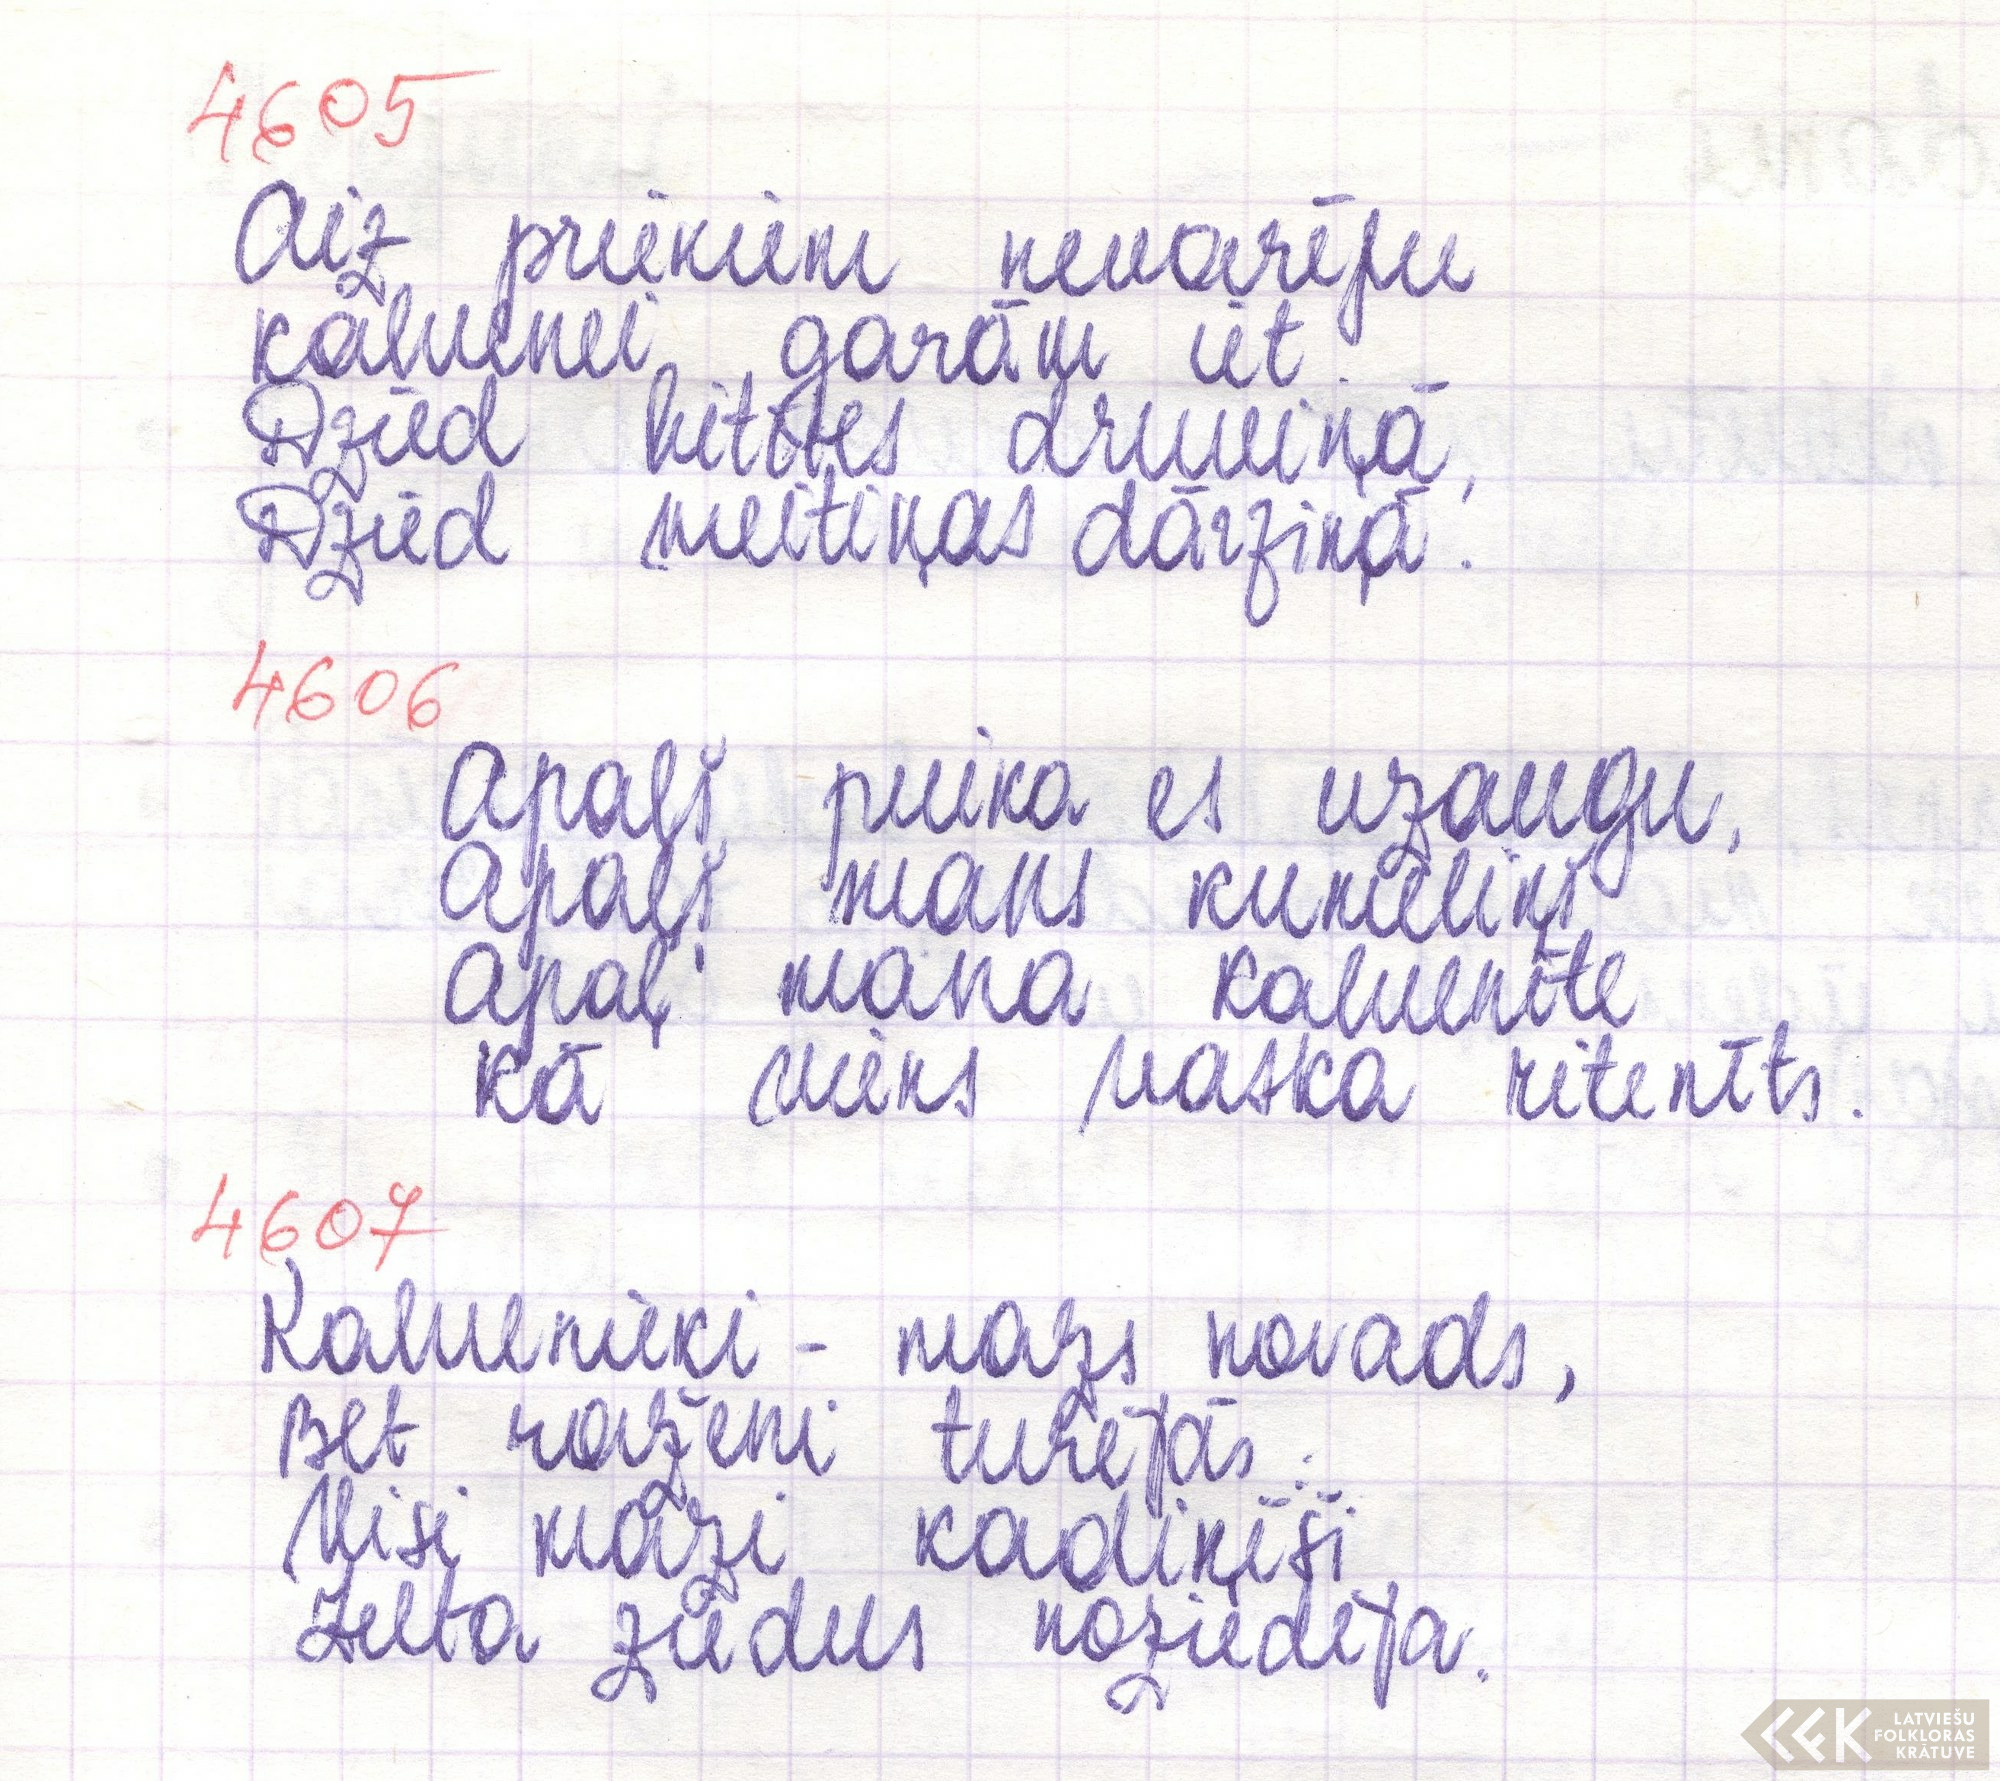 4605
Aiz priekiem nevarēju
kalvenei garām iet.
Dzied bitītes druviņā,
Dzied meitiņas dārziņā.
4606
Apaļš puika es uzaugu,
Apaļš mans kumeliņš
Apaļ' mana kalvenīte
Kā viens vaska ritenīts.
4607
Kalvenieki - mazs novads,
Bet raženi turējās:
Visi mazi kadiķīši
Zelta ziedus noziedēja.
LATVIEŠU
FOLKLORAS
KRĀTUVE